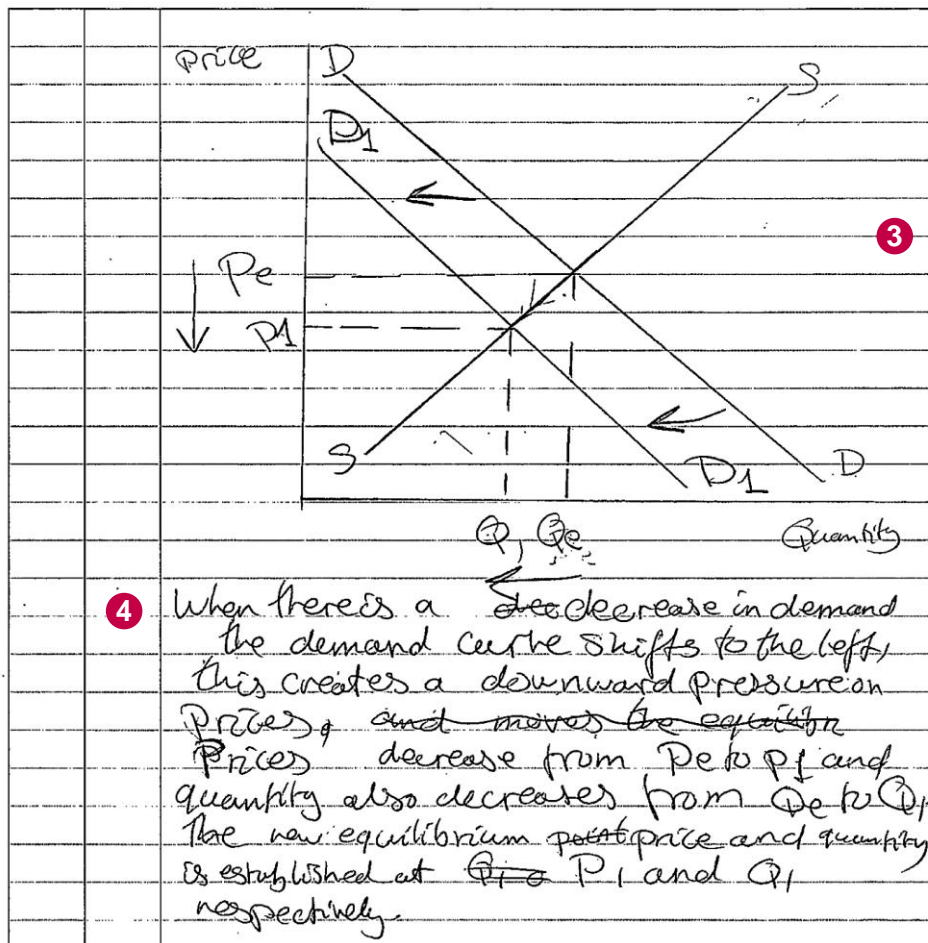 price
D
S
D1
3
Pe
P1
S
D1
D
Q1 Qe
Quantity
4
When there is a dec decrease in demand
the demand curve shifts to the left,
this creates a downward pressure on
prices, and moves the equilibr
Prices decrease from Pe to P1 and
quantity also decreases from Qe to Q1
The new equilibrium point price and quantity
is established at Q1 P1 and Q1
respectively.